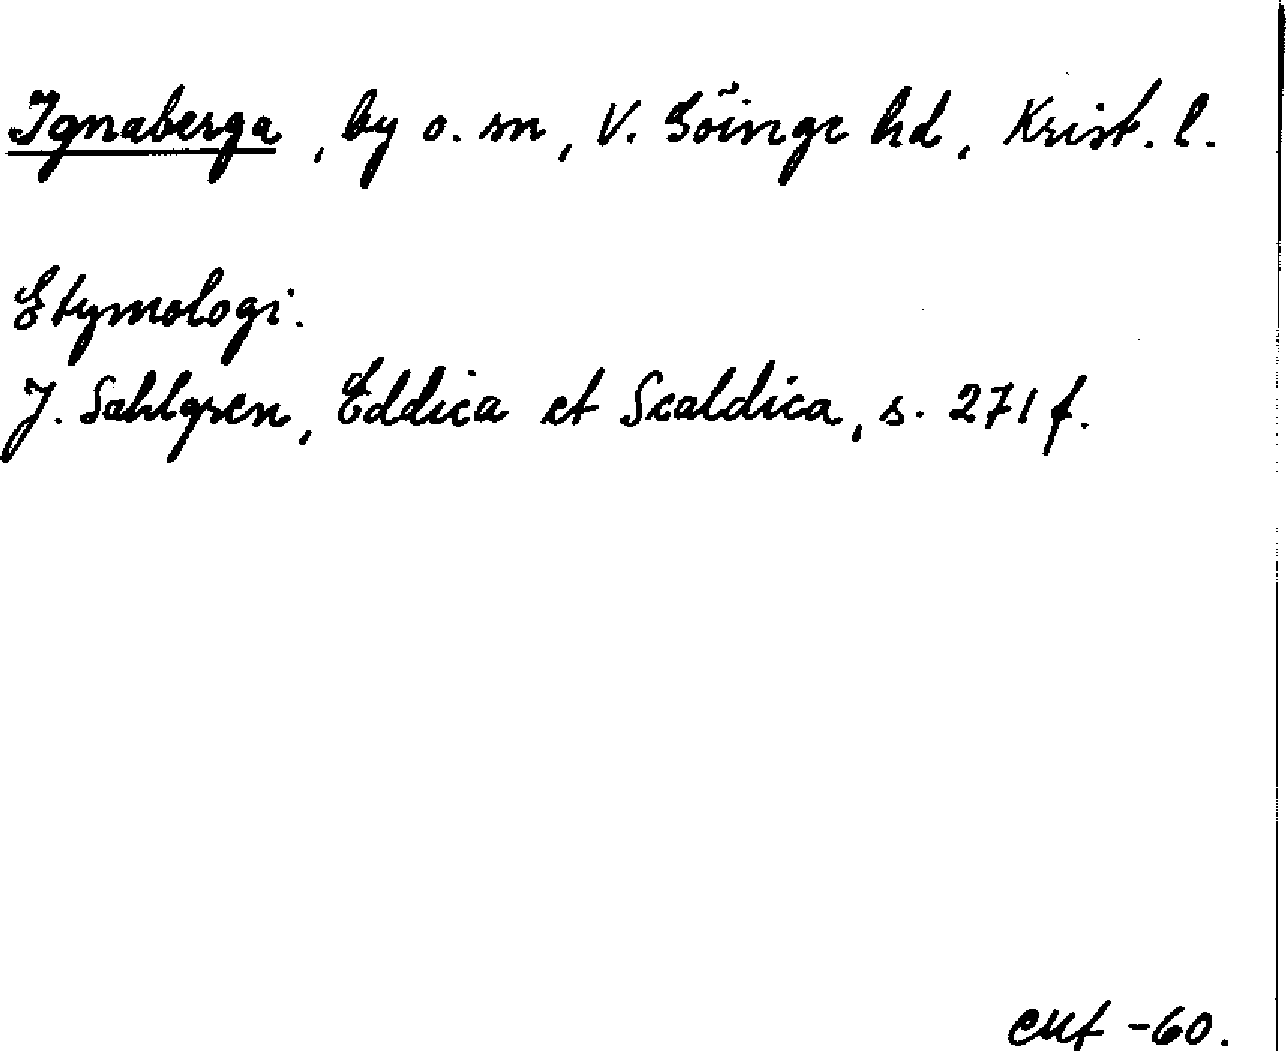 Ignaberga, by o. sn, V. Göinge hd, Krist. l.
Etymologi.
J. Sahlgren, Eddica et Scaldica, s. 271 f.
-60.